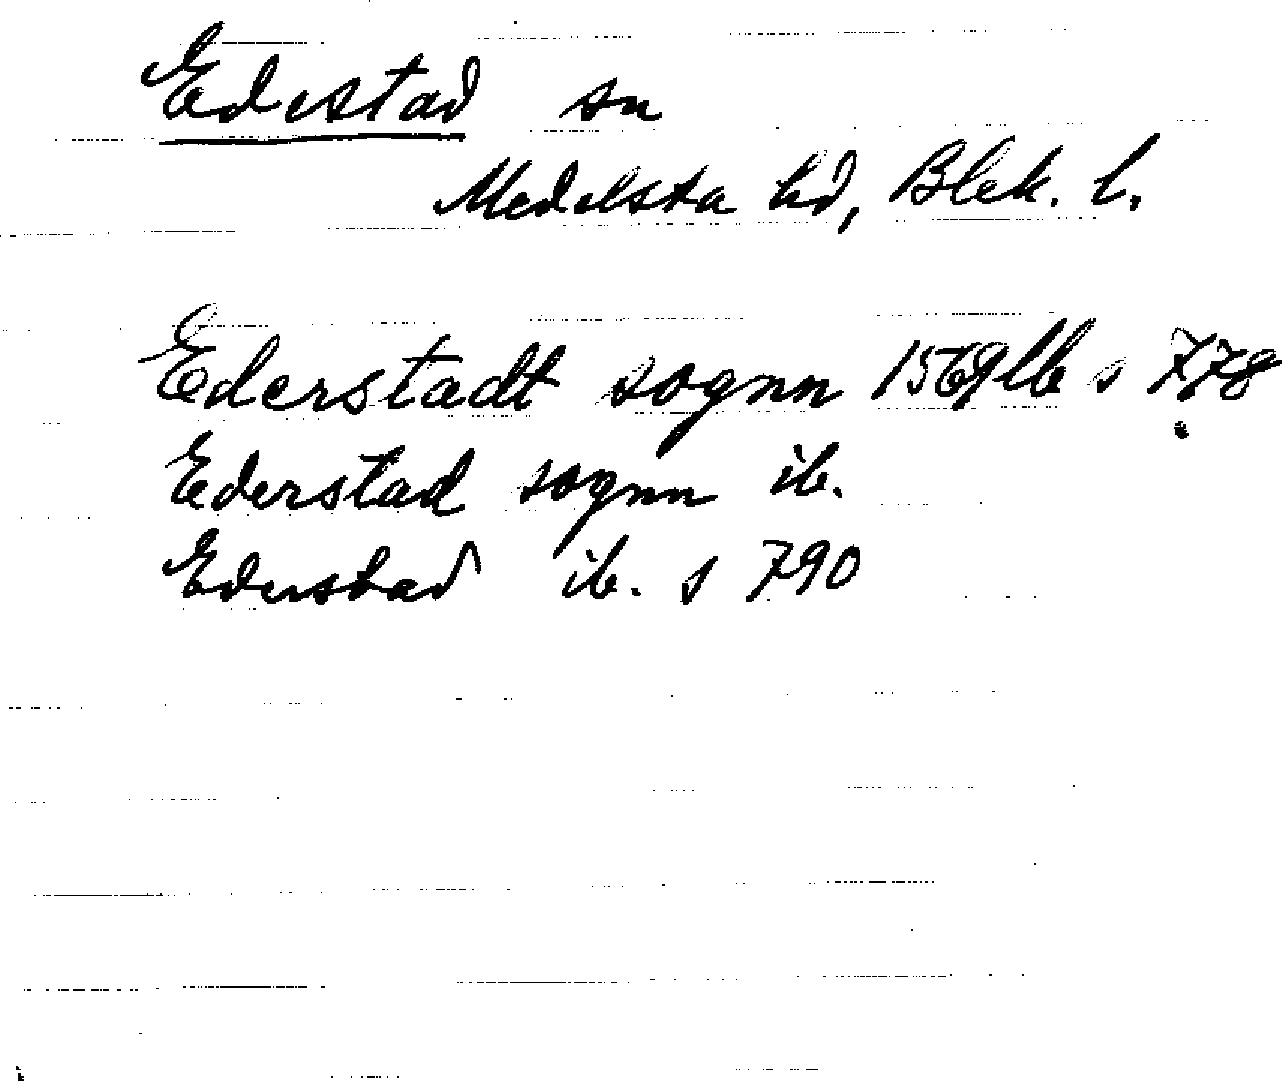 Edestad sn
Medelsta hd, Blek. l.
Ederstadt sognn 1569 lb s 778
Ederstad sognn ib.
Ederstad ib. s 790